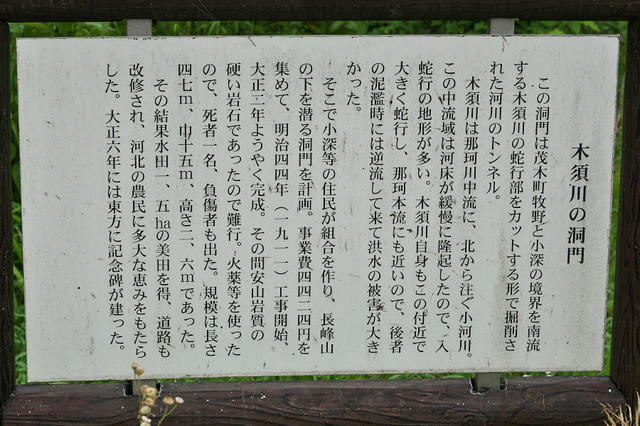 木須川の洞門
この洞門は茂木町牧野と小深の境界を南流
する木須川の蛇行部をカットする形で掘削さ
れた河川のトンネル。
木須川は那珂川中流に、北から注ぐ小河川。
この中流域は河床が緩慢に隆起したので、入
蛇行の地形が多い。木須川自身もこの付近で
大きく蛇行し、那珂本流にも近いので、後者
の泥濫時には逆流して来て洪水の被害が大き
かった。
そこで小深等の住民が組合を作り、長峰山
の下を潜る洞門を計画。事業費四四二四円を
集めて、明治四四年（一九一一）工事開始、
大正二年ようやく完成。その間安山岩質の
硬い岩石であったので難行。火薬等を使った
ので、死者一名、負傷者も出た。規模は長さ
四七m、巾十五m、高さ二、六mであった。
その結果水田一、五haの美田を得、道路も
改修され、河北の農民に多大な恵みをもたら
した。大正六年には東方に記念碑が建った。